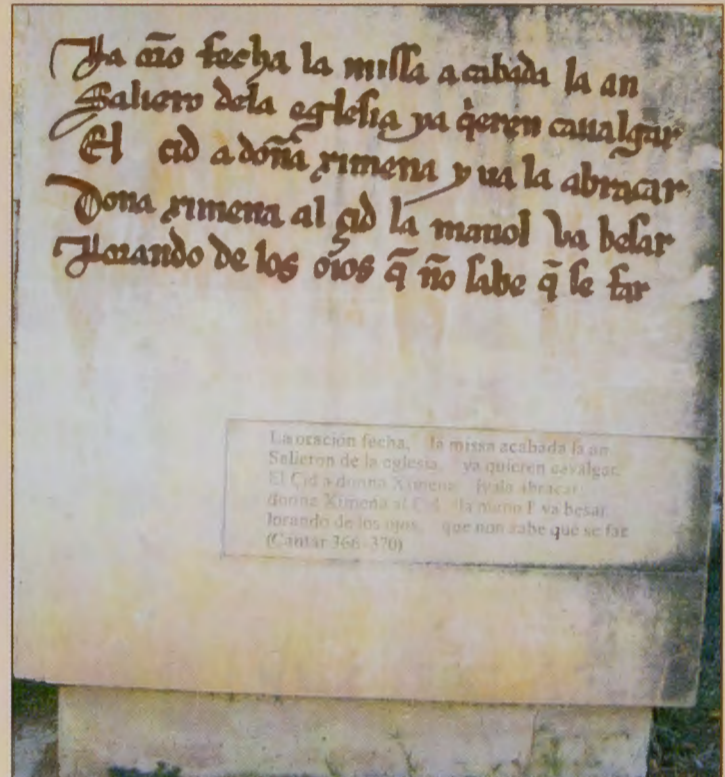 La or̃o fecha la missa acabada la an
Saliero dela eglesia ya q̃eren caualgar
El cid a doña ximena yua la abraçar
Dona ximena al çid la manol va besar
Lorando de los oios q̃ ño sabe q̃ se far
La oración fecha, la missa acabada la an
Salieron de la eglesia, ya quieren cavalgar.
El Çid a donna Ximena ívala abraçar;
donna Ximena al Çid la mano l' va besar
lorando de los ojos, que non sabe qué se far.
(Cantar 366-370)